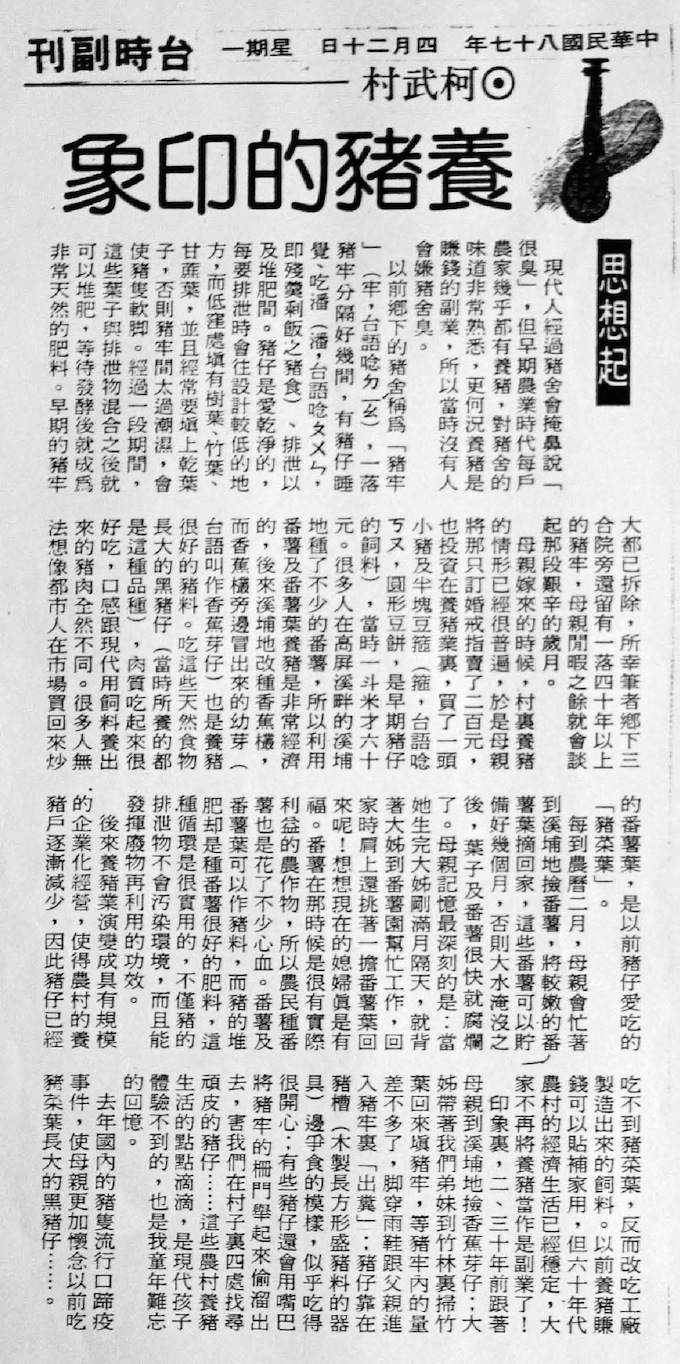 中華民國八十七年 四月二十日 星期一
台時副刊
⊙柯武村
養豬的印象
思想起
現代人經過豬舍會掩鼻說「
很臭」,但早期農業時代每戶
農家幾乎都有養豬,對豬舍的
味道非常熟悉,更何況養豬是
賺錢的副業,所以當時沒有人
會嫌豬舍臭。
以前鄉下的豬舍稱爲「豬牢
」(牢,台語唸ㄉㄧㄠ),一落
豬牢分隔好幾間,有豬仔睡
覺、吃潘(潘,台語唸ㄆㄨㄣ,
即殘羹剩飯之豬食)、排泄以
及堆肥間。豬仔是愛乾淨的,
每要排泄時會往設計較低的地
方,而低窪處塡有樹葉、竹葉、
甘蔗葉,並且經常要塡上乾葉
子,否則豬牢間太過潮濕,會
使豬隻軟脚。經過一段期間,
這些葉子與排泄物混合之後就
可以堆肥,等待發酵後就成爲
非常天然的肥料。早期的豬牢
大都已拆除,所幸筆者鄉下三
合院旁還留有一落四十年以上
的豬牢,母親閒暇之餘就會談
起那段艱辛的歲月。
母親嫁來的時候,村裏養豬
的情形已經很普遍,於是母親
將那只訂婚戒指賣了二百元,
也投資在養豬業裏,買了一頭
小豬及半塊豆箍(箍,台語唸
ㄎㄡ,圓形豆餅,是早期豬仔
的飼料),當時一斗米才六十
元。很多人在高屏溪畔的溪埔
地種了不少的番薯,所以利用
番薯及番薯葉養豬是非常經濟
的,後來溪埔地改種香蕉欉,
而香蕉欉旁邊冒出來的幼芽(
台語叫作香蕉芽仔)也是養豬
很好的豬料。吃這些天然食物
長大的黑豬仔(當時所養的都
是這種品種),肉質吃起來很
好吃,口感跟現代用飼料養出
來的豬肉全然不同。很多人無
法想像都市人在市場買回來炒
的番薯葉,是以前豬仔愛吃的
「豬菜葉」。
每到農曆二月,母親會忙著
到溪埔地撿番薯,將較嫩的番
薯葉摘回家,這些番薯可以貯
備好幾個月,否則大水淹沒之
後,葉子及番薯很快就腐爛
了。母親記憶最深刻的是:當
她生完大姊剛滿月隔天,就背
著大姊到番薯園幫忙工作,回
家時肩上還挑著一擔番薯葉回
來呢!想想現在的媳婦眞是有
福。番薯在那時候是很有實際
利益的農作物,所以農民種番
薯也是花了不少心血。番薯及
番薯葉可以作豬料,而豬的堆
肥却是種番薯很好的肥料,這
種循環是很實用的,不僅豬的
排泄物不會汚染環境,而且能
發揮廢物再利用的功效。
後來養豬業演變成具有規模
的企業化經營,使得農村的養
豬戶逐漸減少,因此豬仔已經
吃不到豬菜葉,反而改吃工廠
製造出來的飼料。以前養豬賺
錢可以貼補家用,但六十年代
農村的經濟生活已經穩定,大
家不再將養豬當作是副業了!
印象裏,二、三十年前跟著
母親到溪埔地撿香蕉芽仔;大
姊帶著我們弟妹到竹林裏掃竹
葉回來塡豬牢,等豬牢內的量
差不多了,脚穿雨鞋跟父親進
入豬牢裏「出糞」;豬仔靠在
豬槽(木製長方形盛豬料的器
具)邊爭食的模樣,似乎吃得
很開心;有些豬仔還會用嘴巴
將豬牢的柵門舉起來偷溜出
去,害我們在村子裏四處找尋
頑皮的豬仔……這些農村養豬
生活的點點滴滴,是現代孩子
體驗不到的,也是我童年難忘
的回憶。
去年國內的豬隻流行口蹄疫
事件,使母親更加懷念以前吃
豬菜葉長大的黑豬仔……。